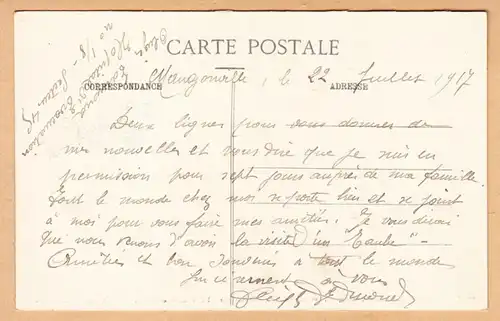 CARTE POSTALE
Mangonville, le 22 Juillet 1917
CORRESPONDANCE
ADRESSE
Deux lignes pour vous donner de
mes nouvelles et vous dire que je suis en
permission pour sept jours auprès de ma famille
tout le monde chez moi se porte bien et se joint
à moi pour vous faire mes amitiés. Je vous dirai
que nous venons d'avoir la visite d'un "Taube"
Amitiés et bon souvenir à tout le monde
Sincèrement à vous
Edmond
Hôpital
Secteur